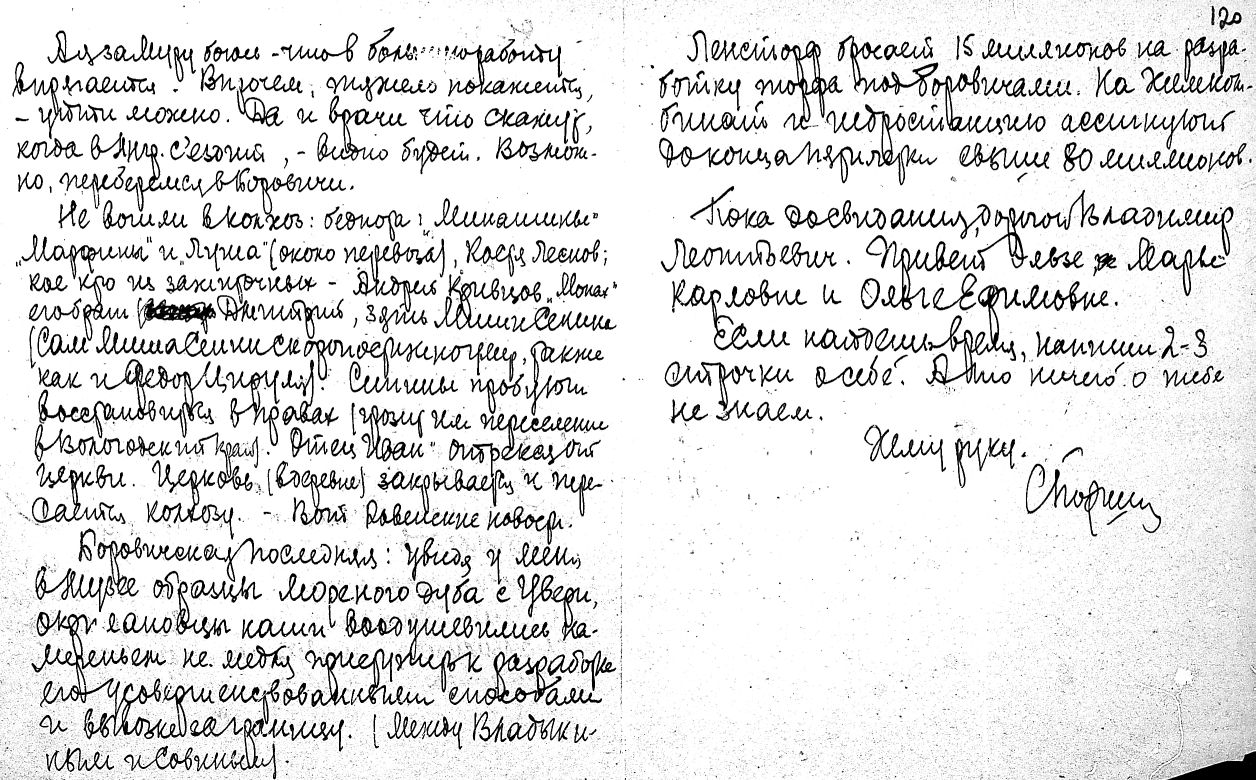 А за Муру боюсь – что в работу
впрягается. Впрочем, тяжело покажется,
– уйти можно. Да и врачи что скажут,
когда в Лнгр. съездит, – видно будет. Возмож-
но, переберемся в Боровичи.
Не вошли в колхоз: беднота: "Минашины"
"Марфины" и "Луша" (около перевоза), Костя Леснов;
кое кто из зажиточных – Андрей Кривцов, "Монах"
его брат Дмитрий, зять Миши Сенина
(Сам Миша Сенин скоропостижно умер, также
как и Федор Цируля). Сенины пробуют
восстановиться в правах (грозит им переселение
в Вологодский край). Отец Иван отрекся от
церкви. Церковь (в деревне) закрывается и пере-
дается колхозу. – Вот Ровенские новости.
Боровичская последняя: увидя у меня
в Музее образцы мореного дуба с Увери,
окрплановцы наши воодушевились на-
мереньем не медля приступить к разработке
его усовершенствованными способами
и вывозке за границу. (Между Владыки-
ным и Совиным).
120
Ленсторф бросает 15 миллионов на разра-
ботку торфа под Боровичами. На Химком-
бинат и гидростанцию ассигнуют
до конца пятилетки свыше 80 миллионов.
Пока досвидания, дорогой Владимир
Леонтьевич. Привет Эльзе Марье
Карловне и Ольге Ефимовне.
Если найдешь время, напиши 2-3
строчки о себе. А то ничего о тебе
не знаем.
Жму руку.